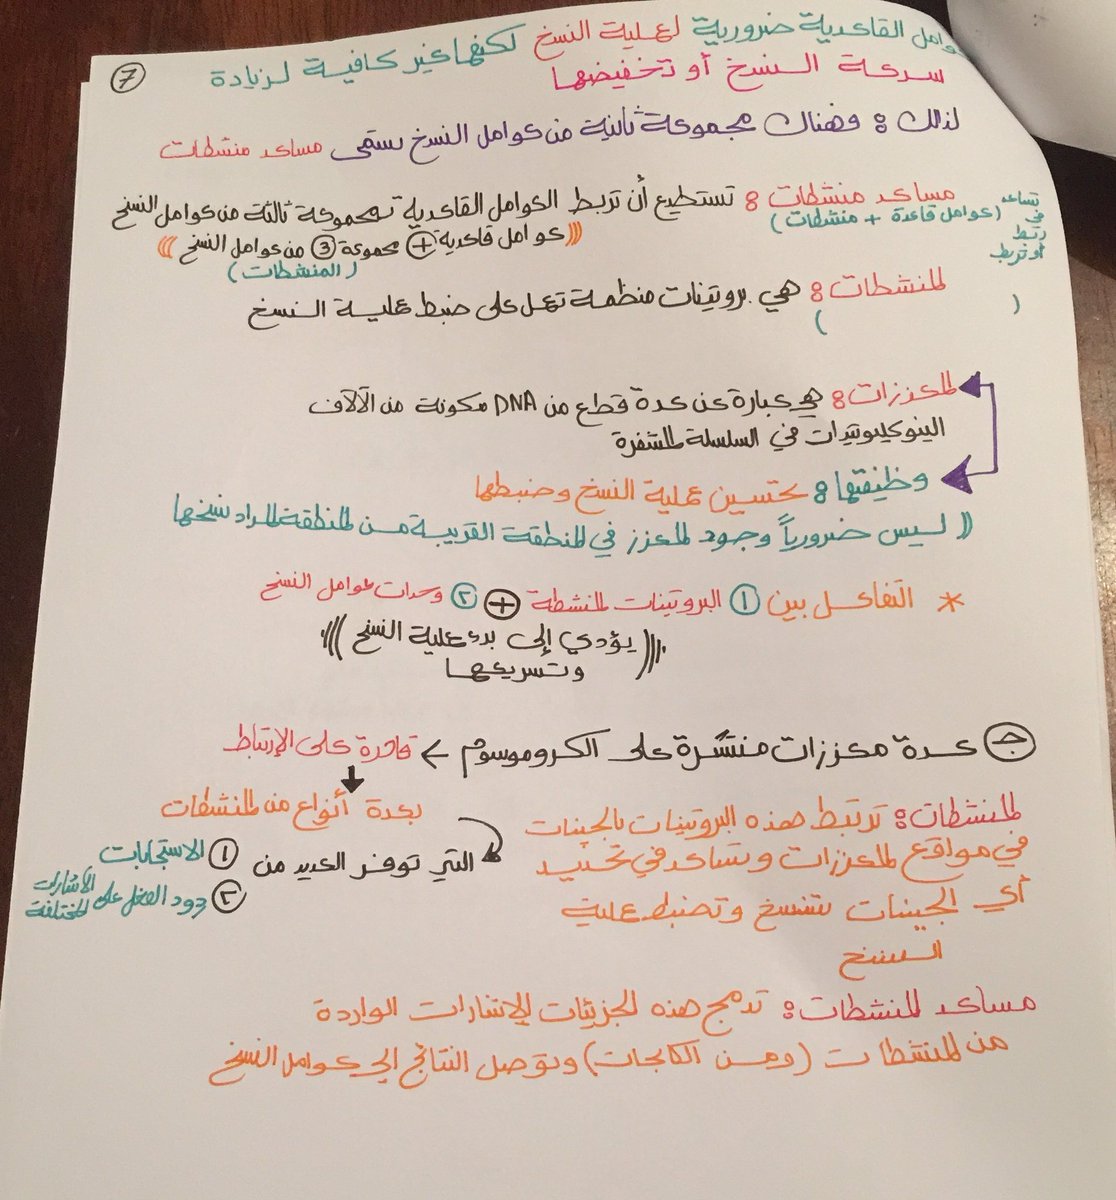 عوامل القاعدية ضرورية لعملية النسخ لكنها غير كافية لزيادة
سرعة النسخ أو تخفيضها
7
لذلك: فهناك مجموعة ثانية من عوامل النسخ تسمى مساعد منشطات
مساعد منشطات: تستطيع أن تربط العوامل القاعدية بمجموعة ثالثة من عوامل النسخ
(عوامل قاعدة + منشطات)
تساعد
في
ربط
أو تربط
(((عوامل قاعدية + مجموعة 3 من عوامل النسخ)))
(المنشطات)
المنشطات: هي بروتينات منظمة تعمل على ضبط عملية النسخ
( )
المعززات: هي عبارة عن عدة قطع من DNA مكونة من الآلاف
النيوكليوتيدات في السلسلة المشفرة
وظيفتها: تحسين عملية النسخ وضبطها
(( ليس ضرورياً وجود المعزز في المنطقة القريبة من المنطقة المراد نسخها
* التفاعل بين ١ البروتينات المنشطة + ٢ وحدات عوامل النسخ
(((يؤدي إلى بدء عملية النسخ)))
وتسريعها
ج عدة معززات منتشرة على الكروموسوم ← قادرة على الارتباط
بعدة أنواع من المنشطات
التي توفر العديد من ١ الاستجابات
٢ ردود الفعل على الاشارات
المختلفة
المنشطات: ترتبط هذه البروتينات بالجينات
في مواقع المعززات وتساعد في تحديد
أي الجينات ستنسخ وتضبط عملية
النسخ
مساعد المنشطات: تدمج هذه الجزيئات الإشارات الواردة
من المنشطات (ومن الكابحات) وتوصل النتائج إلى عوامل النسخ